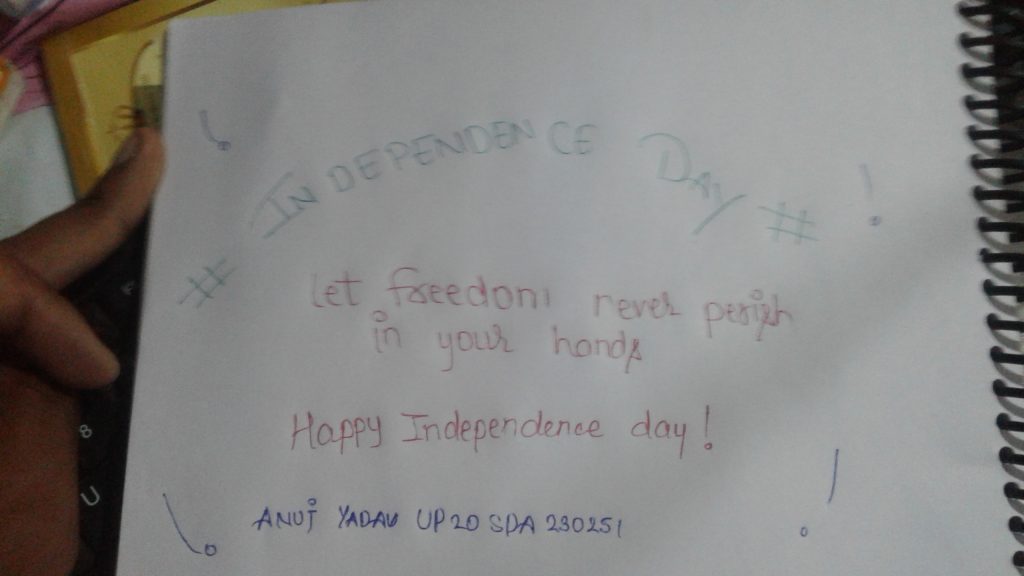 # INDEPENDENCE DAY #
Let freedom never perish
in your hands
Happy Independence day!
ANUJ YADAV UP20SDA230251
8
U